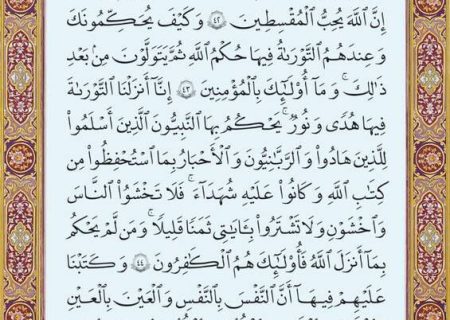 إِنَّ اللَّهَ يُحِبُّ الْمُقْسِطِينَ ﴿٤٢﴾ وَكَيْفَ يُحَكِّمُونَكَ
وَعِندَهُمُ التَّوْرَىٰةُ فِيهَا حُكْمُ اللَّهِ ثُمَّ يَتَوَلَّوْنَ مِنۢ بَعْدِ
ذَٰلِكَ ۚ وَمَآ أُو۟لَٰٓئِكَ بِالْمُؤْمِنِينَ ﴿٤٣﴾ إِنَّآ أَنزَلْنَا التَّوْرَىٰةَ
فِيهَا هُدًى وَنُورٌ ۚ يَحْكُمُ بِهَا النَّبِيُّونَ الَّذِينَ أَسْلَمُوا۟
لِلَّذِينَ هَادُوا۟ وَالرَّبَّٰنِيُّونَ وَالْأَحْبَارُ بِمَا اسْتُحْفِظُوا۟ مِن
كِتَٰبِ اللَّهِ وَكَانُوا۟ عَلَيْهِ شُهَدَآءَ ۚ فَلَا تَخْشَوُا۟ النَّاسَ
وَاخْشَوْنِ وَلَا تَشْتَرُوا۟ بِـَٔايَٰتِى ثَمَنًا قَلِيلًا ۚ وَمَن لَّمْ يَحْكُم
بِمَآ أَنزَلَ اللَّهُ فَأُو۟لَٰٓئِكَ هُمُ الْكَٰفِرُونَ ﴿٤٤﴾ وَكَتَبْنَا
عَلَيْهِمْ فِيهَآ أَنَّ النَّفْسَ بِالنَّفْسِ وَالْعَيْنَ بِالْعَيْنِ